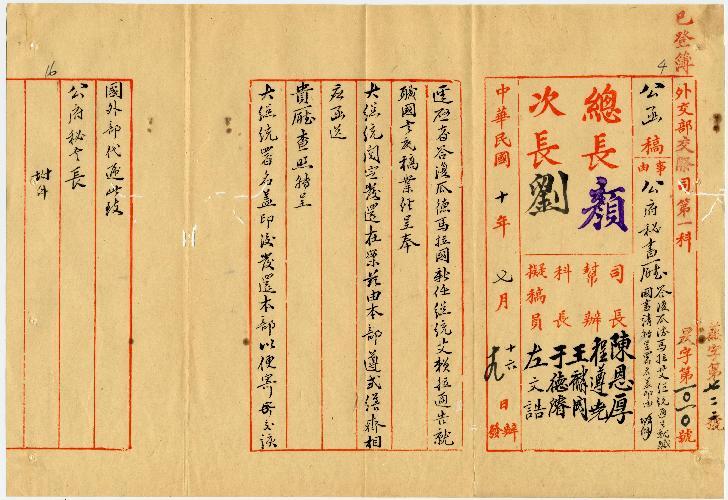 已登簿
外交部交際司第一科
晨字第一〇一〇號
發字第七二二號
4
公函稿
事由
公府秘書廳
答復瓜德馬拉艾總統通告就職
國書請轉呈署名蓋印由
附件
總長 顏
次長 劉
司長 陳恩厚
幫辦 程遵堯
王麟閣
科長 于德濬
擬稿員 左文誥
中華民國十年七月
十六
九
日
辦
發
逕啟者答復瓜德馬拉國新任總統艾賴拉通告就
職國書底稿業經呈奉
大總統閱定發還在案茲由本部遵式繕齊相
應函送
貴廳查照轉呈
大總統署名蓋印後發還本部以便寄交該
16
國外部代遞此致
公府秘書長
附件